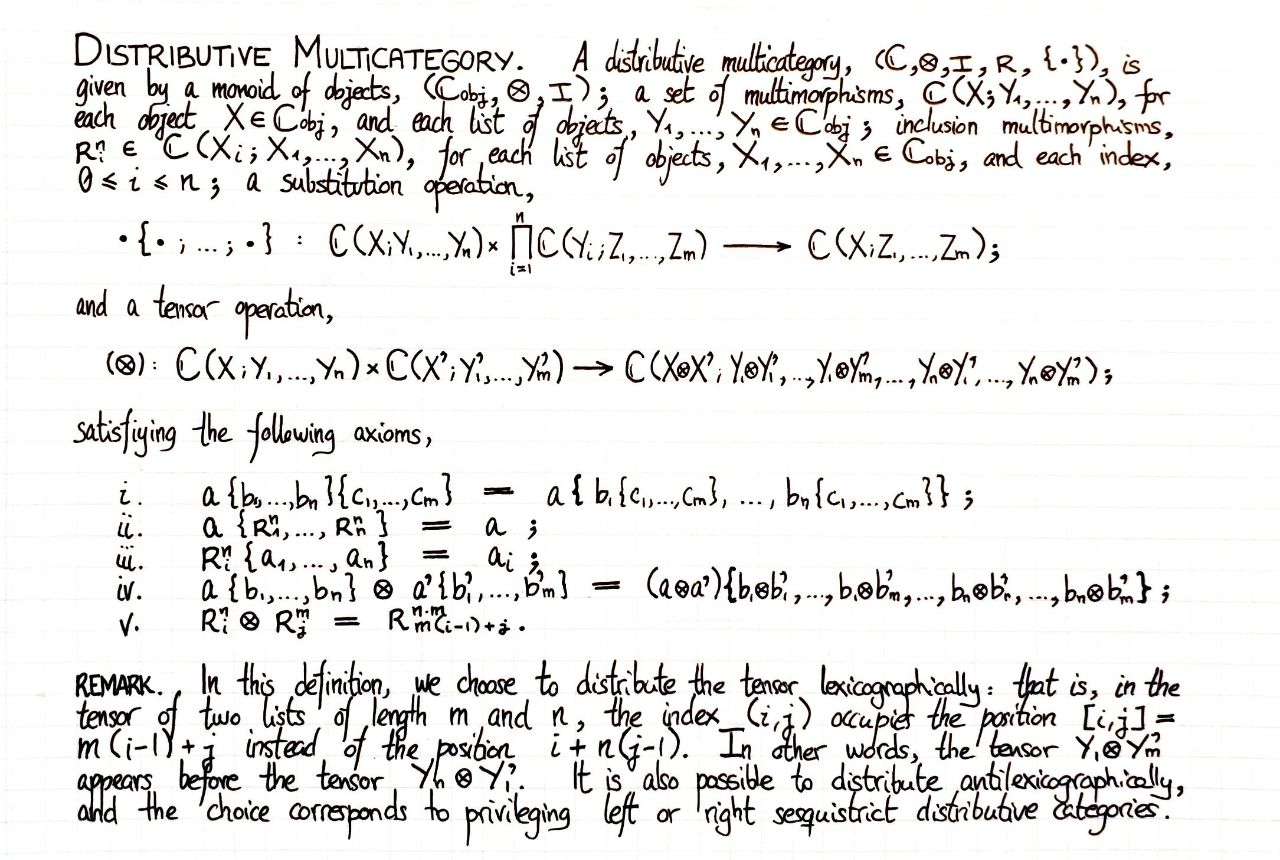 DISTRIBUTIVE MULTICATEGORY. A distributive multicategory, (ℂ,⊗,I,R,{•}), is
given by a monoid of objects, (ℂobj,⊗,I); a set of multimorphisms, ℂ(X;Y₁,...,Yₙ), for
each object X∈ℂobj, and each list of objects, Y₁,...,Yₙ∈ℂobj; inclusion multimorphisms,
Rᵢⁿ ∈ ℂ(Xᵢ;X₁,...,Xₙ), for each list of objects, X₁,...,Xₙ∈ℂobj, and each index,
0≤i≤n; a substitution operation,
•{•;...;•} : ℂ(X;Y₁,...,Yₙ)× ∏ⁿᵢ₌₁ ℂ(Yᵢ;Z₁,...,Zₘ) ⟶ ℂ(X;Z₁,...,Zₘ);
and a tensor operation,
(⊗): ℂ(X;Y₁,...,Yₙ)×ℂ(X';Y'₁,...,Y'ₘ) → ℂ(X⊗X';Y₁⊗Y'₁,...,Y₁⊗Y'ₘ,...,Yₙ⊗Y'₁,...,Yₙ⊗Y'ₘ);
satisfiying the following axioms,
i. a{b₁,...,bₙ}{c₁,...,cₘ} = a{b₁{c₁,...,cₘ},...,bₙ{c₁,...,cₘ}};
ii. a{R₁ⁿ,...,Rₙⁿ} = a;
iii. Rᵢⁿ{a₁,...,aₙ} = aᵢ;
iv. a{b₁,...,bₙ} ⊗ a'{b'₁,...,b'ₘ} = (a⊗a'){b₁⊗b'₁,...,b₁⊗b'ₘ,...,bₙ⊗b'₁,...,bₙ⊗b'ₘ};
v. Rᵢⁿ ⊗ Rⱼᵐ = R^{n·m}_{m(i-1)+j}.
REMARK. In this definition, we choose to distribute the tensor lexicographically: that is, in the
tensor of two lists of length m and n, the index (i,j) occupies the position [i,j] =
m(i-1)+j instead of the position i+n(j-1). In other words, the tensor Y₁⊗Y'ₘ
appears before the tensor Yₙ⊗Y'₁. It is also possible to distribute antilexicographically,
and the choice corresponds to privileging left or right sesquistrict distributive categories.